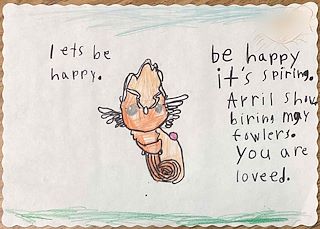 lets be
happy.
be happy
it's spiring.
Arril show
biring may
fowlers.
you are
loveed.